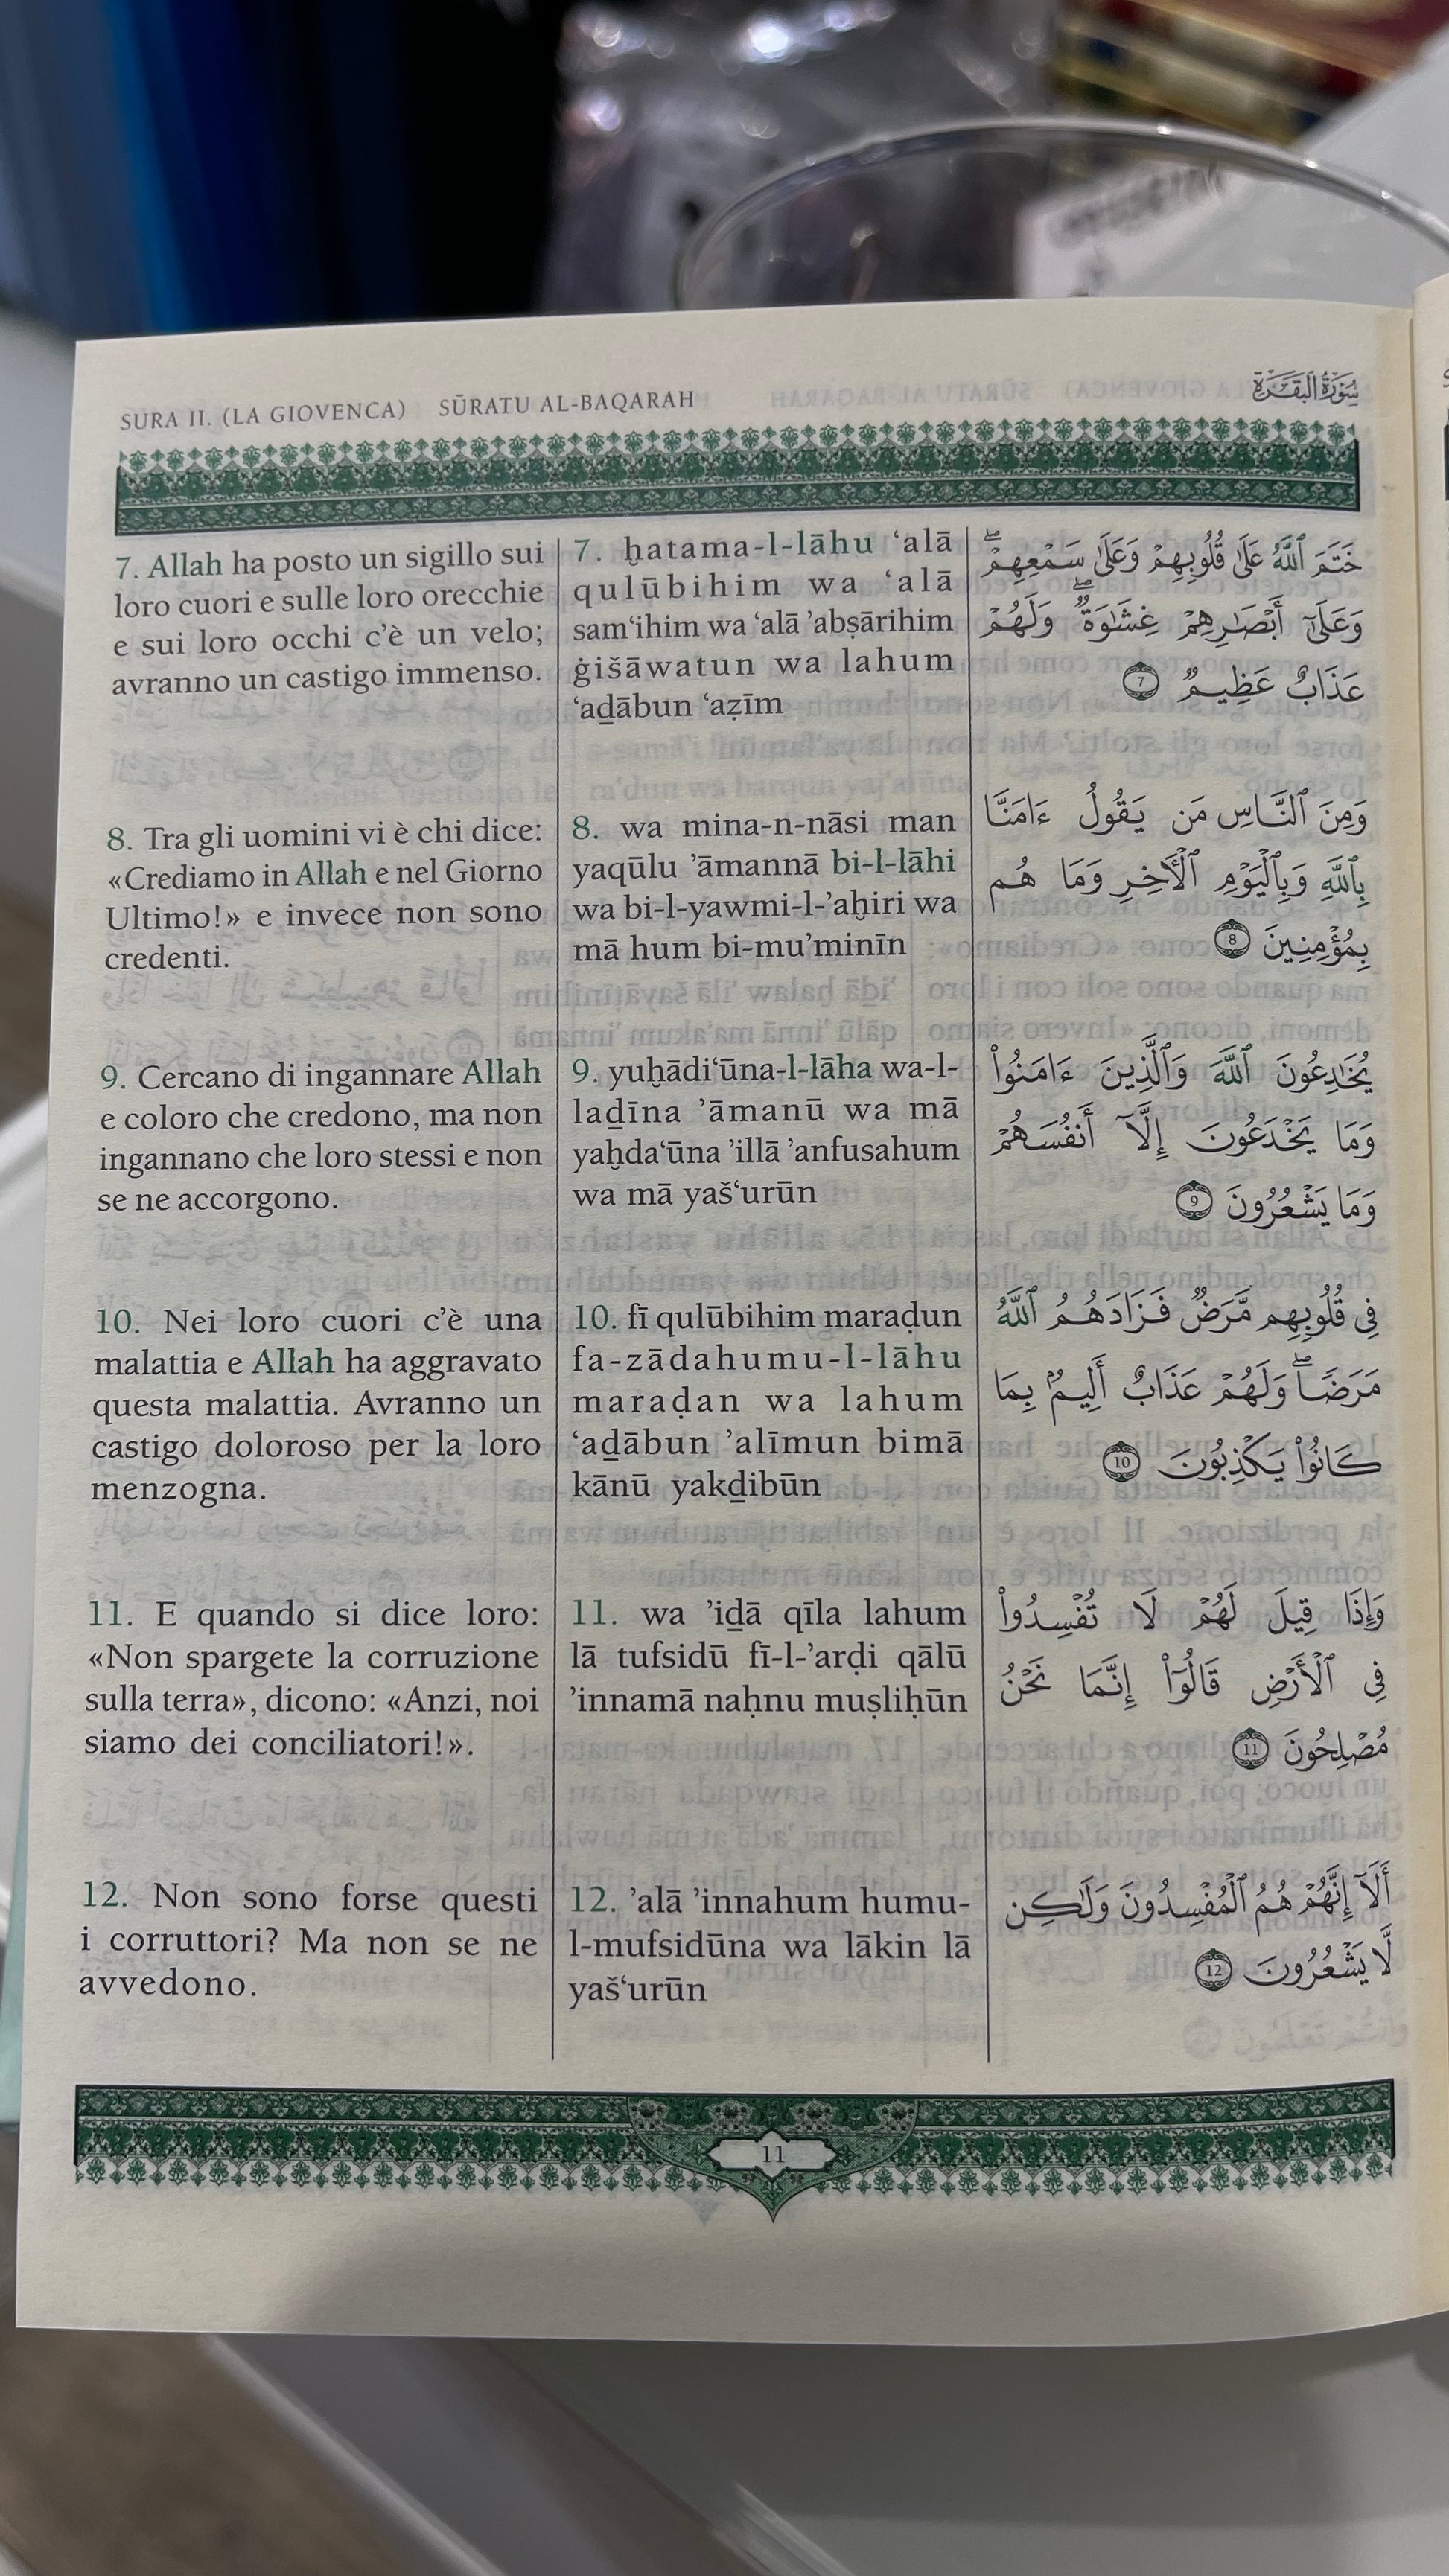 SURA II. (LA GIOVENCA) SŪRATU AL-BAQARAH
سُورَةُ البَقَرَةِ
7. Allah ha posto un sigillo sui
loro cuori e sulle loro orecchie
e sui loro occhi c’è un velo;
avranno un castigo immenso.
7. ḫatama-l-lāhu ‘alā
qulūbihim wa ‘alā
sam‘ihim wa ‘alā ’abṣārihim
ġišāwatun wa lahum
‘aḏābun ‘aẓīm
خَتَمَ ٱللَّهُ عَلَىٰ قُلُوبِهِمْ وَعَلَىٰ سَمْعِهِمْ ۖ
وَعَلَىٰٓ أَبْصَٰرِهِمْ غِشَٰوَةٌ ۖ وَلَهُمْ
عَذَابٌ عَظِيمٌ 7
8. Tra gli uomini vi è chi dice:
«Crediamo in Allah e nel Giorno
Ultimo!» e invece non sono
credenti.
8. wa mina-n-nāsi man
yaqūlu ’āmannā bi-l-lāhi
wa bi-l-yawmi-l-’aḫiri wa
mā hum bi-mu’minīn
وَمِنَ ٱلنَّاسِ مَن يَقُولُ ءَامَنَّا
بِٱللَّهِ وَبِٱلْيَوْمِ ٱلْءَاخِرِ وَمَا هُم
بِمُؤْمِنِينَ 8
9. Cercano di ingannare Allah
e coloro che credono, ma non
ingannano che loro stessi e non
se ne accorgono.
9. yuḫādi‘ūna-l-lāha wa-l-
laḏīna ’āmanū wa mā
yaḫda‘ūna ’illā ’anfusahum
wa mā yaš‘urūn
يُخَٰدِعُونَ ٱللَّهَ وَٱلَّذِينَ ءَامَنُوا۟
وَمَا يَخْدَعُونَ إِلَّآ أَنفُسَهُمْ
وَمَا يَشْعُرُونَ 9
10. Nei loro cuori c’è una
malattia e Allah ha aggravato
questa malattia. Avranno un
castigo doloroso per la loro
menzogna.
10. fī qulūbihim maraḍun
fa-zādahumu-l-lāhu
maraḍan wa lahum
‘aḏābun ’alīmun bimā
kānū yakḏibūn
فِى قُلُوبِهِم مَّرَضٌ فَزَادَهُمُ ٱللَّهُ
مَرَضًا ۖ وَلَهُمْ عَذَابٌ أَلِيمٌۢ بِمَا
كَانُوا۟ يَكْذِبُونَ 10
11. E quando si dice loro:
«Non spargete la corruzione
sulla terra», dicono: «Anzi, noi
siamo dei conciliatori!».
11. wa ’iḏā qīla lahum
lā tufsidū fī-l-’arḍi qālū
’innamā naḥnu muṣliḥūn
وَإِذَا قِيلَ لَهُمْ لَا تُفْسِدُوا۟
فِى ٱلْأَرْضِ قَالُوٓا۟ إِنَّمَا نَحْنُ
مُصْلِحُونَ 11
12. Non sono forse questi
i corruttori? Ma non se ne
avvedono.
12. ’alā ’innahum humu-
l-mufsidūna wa lākin lā
yaš‘urūn
أَلَآ إِنَّهُمْ هُمُ ٱلْمُفْسِدُونَ وَلَٰكِن
لَّا يَشْعُرُونَ 12
11